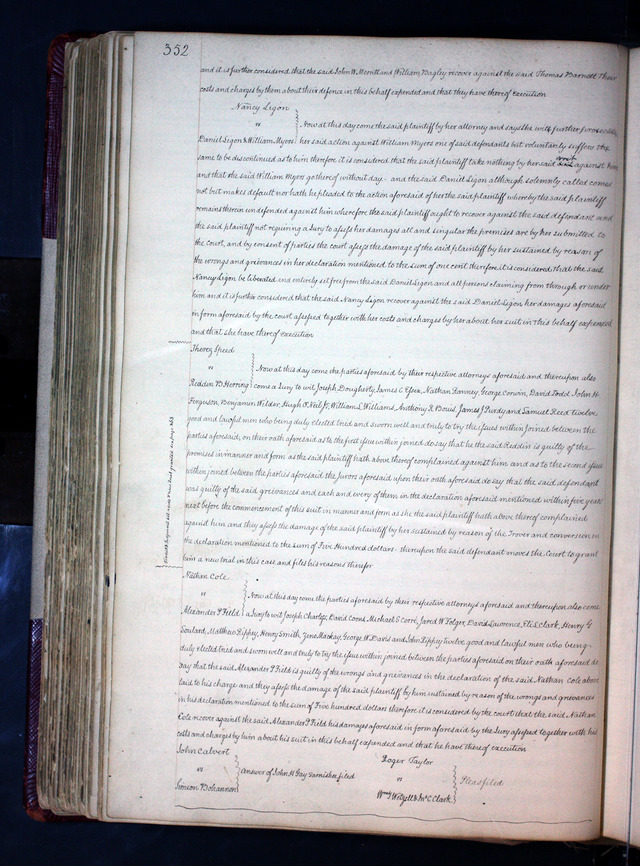 352
and it is further considered that the said John W. Merritt and William Bagley recover against the said Thomas Barnett their
costs and charges by them about their defence in this behalf expended and that they have thereof execution
Nancy Ligon
vs
Daniel Ligon & William Myers
Now at this day come the said plaintiff by her attorney and says she will further prosecute
her said action against William Myers one of said defendants but voluntarily suffers the
same to be discontinued as to him therefore it is considered that the said plaintiff take nothing by her said writ against him
and that the said William Myers go thereof without day and the said Daniel Ligon although solemnly called comes
not but makes default nor hath he pleaded to the action aforesaid of her the said plaintiff whereby the said plaintiff
remains therein undefended against him wherefore the said plaintiff ought to recover against the said defendant and
the said plaintiff not requiring a Jury to assess her damages all and singular the premises are by her submitted to
the Court, and by consent of parties the court assess the damage of the said plaintiff by her sustained by reason of
the wrongs and grievances in her declaration mentioned to the sum of one cent therefore it is considered that the said
Nancy Ligon be liberated and entirely set free from the said Daniel Ligon and all persons claiming from through or under
him and it is further considered that the said Nancy Ligon recover against the said Daniel Ligon her damages aforesaid
in form aforesaid by the court assessed together with her costs and charges by her about her suit in this behalf expended
and that she have thereof execution
Speed
vs
Redden B Herring
Now at this day come the parties aforesaid by their respective attorneys aforesaid and thereupon also
come a Jury to wit Joseph Dougherty James C Essex, Nathan Ranney, George Corwin, David Todd, John H
Ferguson, Benjamin Wilder, Hugh O. Neil Jr, William L Williams, Anthony R Bouis, James J Purdy and Samuel Reed Twelve
good and lawful men who being duly elected tried and sworn well and truly to try the issues within joined between the
parties aforesaid, on their oath aforesaid as to the first issue within joined do say that he the said Reddin is guilty of the
premises in manner and form as the said plaintiff hath above thereof complained against him and as to the second issue
within joined between the parties aforesaid the Jurors aforesaid upon their oath aforesaid do say that the said defendant
was guilty of the said grievances and each and every of them in the declaration aforesaid mentioned within five years
next before the commencement of this suit in manner and form as she the said plaintiff hath above thereof complained
against him and they assess the damage of the said plaintiff by her sustained by reason of the Trover and conversion in
the declaration mentioned to the sum of Five Hundred dollars. thereupon the said defendant moves the Court to grant
him a new trial in this case and files his reasons therefor
Nathan Cole
vs
Alexander P Field
Now at this day come the parties aforesaid by their respective attorneys aforesaid and thereupon also come
a Jury to wit Joseph Charless, David Coons, Michael S Cerré, Jared W Folger, David Lawrence, Eli S. Clark, Henry G
Soulard, Matthew Rippey, Henry Smith, Zeno Mackay, George W Davis and John Rippey twelve good and lawful men who being
duly elected tried and sworn well and truly to try the issue within joined between the parties aforesaid on their oath aforesaid do
say that the said Alexander P Field is guilty of the wrongs and grievances in the declaration of the said Nathan Cole above
laid to his charge and they assess the damage of the said plaintiff by him sustained by reason of the wrongs and grievances
in his declaration mentioned to the sum of Five hundred dollars therefore it is considered by the court that the said Nathan
Cole recover against the said Alexander P Field his damages aforesaid in form aforesaid by the Jury assessed together with his
costs and charges by him about his suit in this behalf expended and that he have thereof execution
John Calvert
vs
Simeon Bohannon
Answer of John H Gay Garnishee filed
Roger Taylor
vs
Clark
Pleas filed